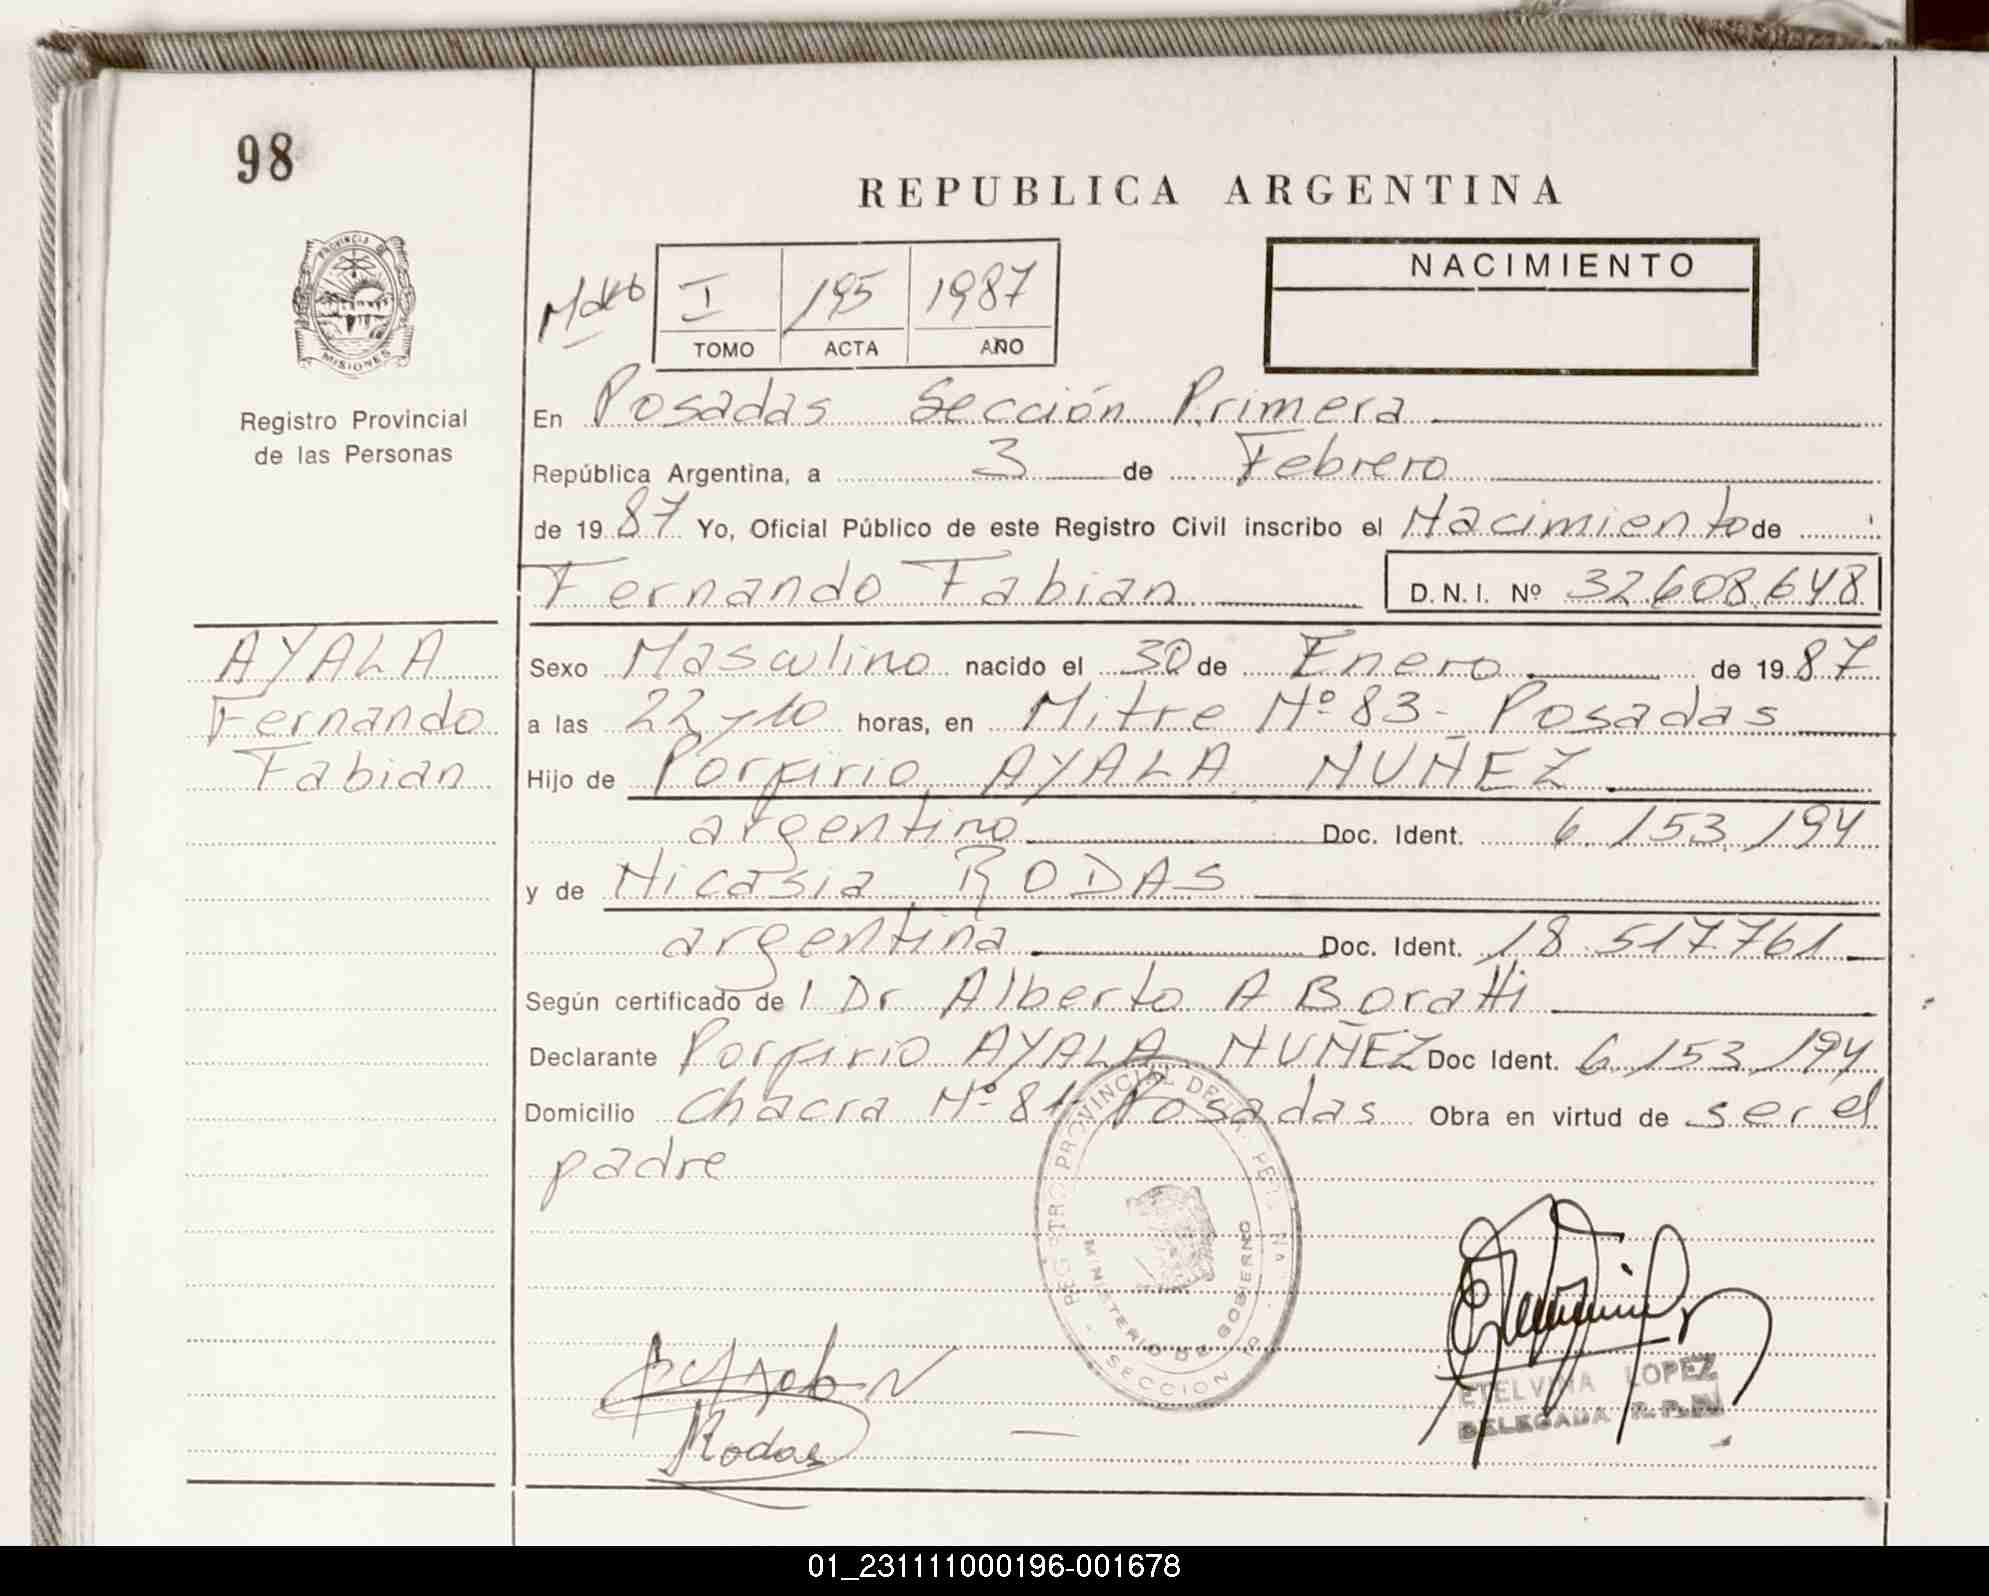 98
REPUBLICA ARGENTINA
NACIMIENTO
I 195 1987
TOMO ACTA AÑO
PROVINCIA DE MISIONES
Registro Provincial
de las Personas
En Posadas Sección Primera
República Argentina, a 3 de Febrero
de 1987 Yo, Oficial Público de este Registro Civil inscribo el Nacimiento de
Fernando Fabian D.N.I. Nº 32.608.648
AYALA
Fernando
Fabian
Sexo Masculino nacido el 30 de Enero de 1987
a las 22 y 10 horas, en Mitre Nº 83 - Posadas
Hijo de Porfirio AYALA NUÑEZ
argentino Doc. Ident. 6.153.194
y de Nicasia RODAS
argentina Doc. Ident. 18.517.761
Según certificado del Dr Alberto A Boratti
Declarante Porfirio AYALA NUÑEZ Doc Ident. 6.153.194
Domicilio Chacra Nº 81 Posadas Obra en virtud de ser el
padre
REGISTRO PROVINCIAL DE LAS PER
MINISTERIO DE GOBIERNO
SECCION 1a
Rodas
ETELVINA LOPEZ
DELEGADA R.P.P.
01_231111000196-001678